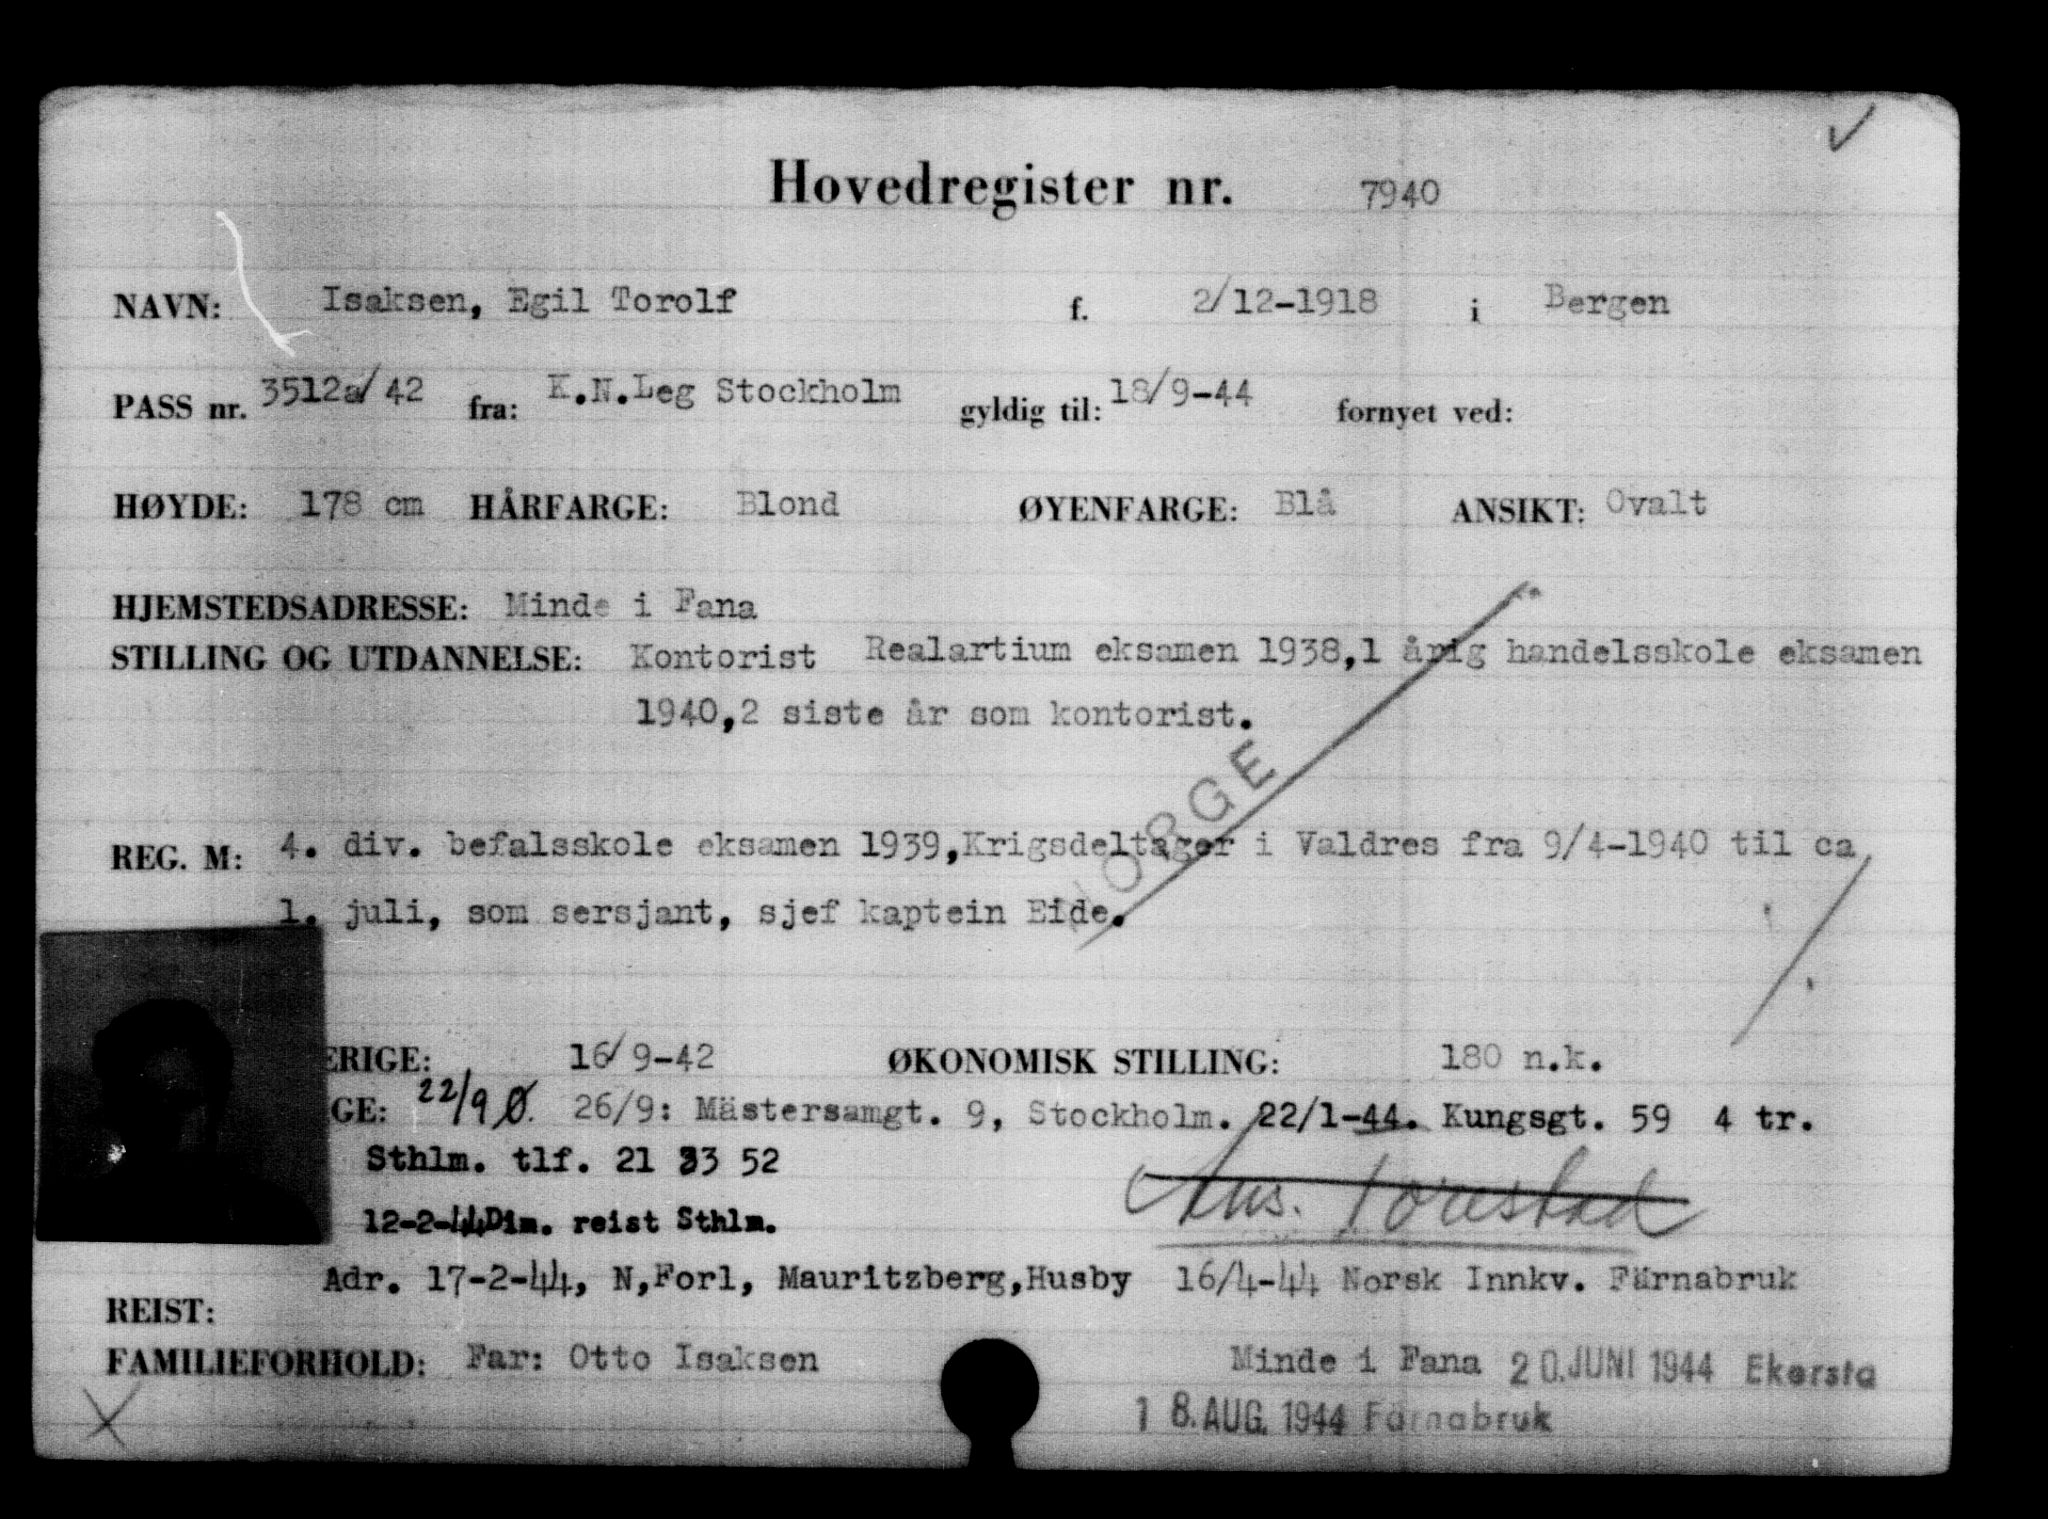 Hovedregister nr. 7940
NAVN: Isaksen, Egil Torolf f. 2/12-1918 i Bergen
PASS nr. 3512a/42 fra: K.N.Leg Stockholm gyldig til: 18/9-44 fornyet ved:
HØYDE: 178 cm HÅRFARGE: Blond ØYENFARGE: Blå ANSIKT: Ovalt
HJEMSTEDSADRESSE: Minde i Fana
STILLING OG UTDANNELSE: Kontorist Realartium eksamen 1938,1 årig handelsskole eksamen
1940,2 siste år som kontorist.
NORGE
REG. M: 4. div. befalsskole eksamen 1939,Krigsdeltager i Valdres fra 9/4-1940 til ca
1. juli, som sersjant, sjef kaptein Eide.
ERIGE: 16/9-42 ØKONOMISK STILLING: 180 n.k.
GE: 22/9 Ø. 26/9: Mästersamgt. 9, Stockholm. 22/1-44. Kungsgt. 59 4 tr.
Sthlm. tlf. 21 33 52
12-2-44 Dim. reist Sthlm.
Adr. 17-2-44, N,Forl, Mauritzberg,Husby 16/4-44 Norsk Innkv. Färnabruk
REIST:
FAMILIEFORHOLD: Far: Otto Isaksen Minde i Fana 20.JUNI 1944 Ekersta
18.AUG.1944 Färnabruk